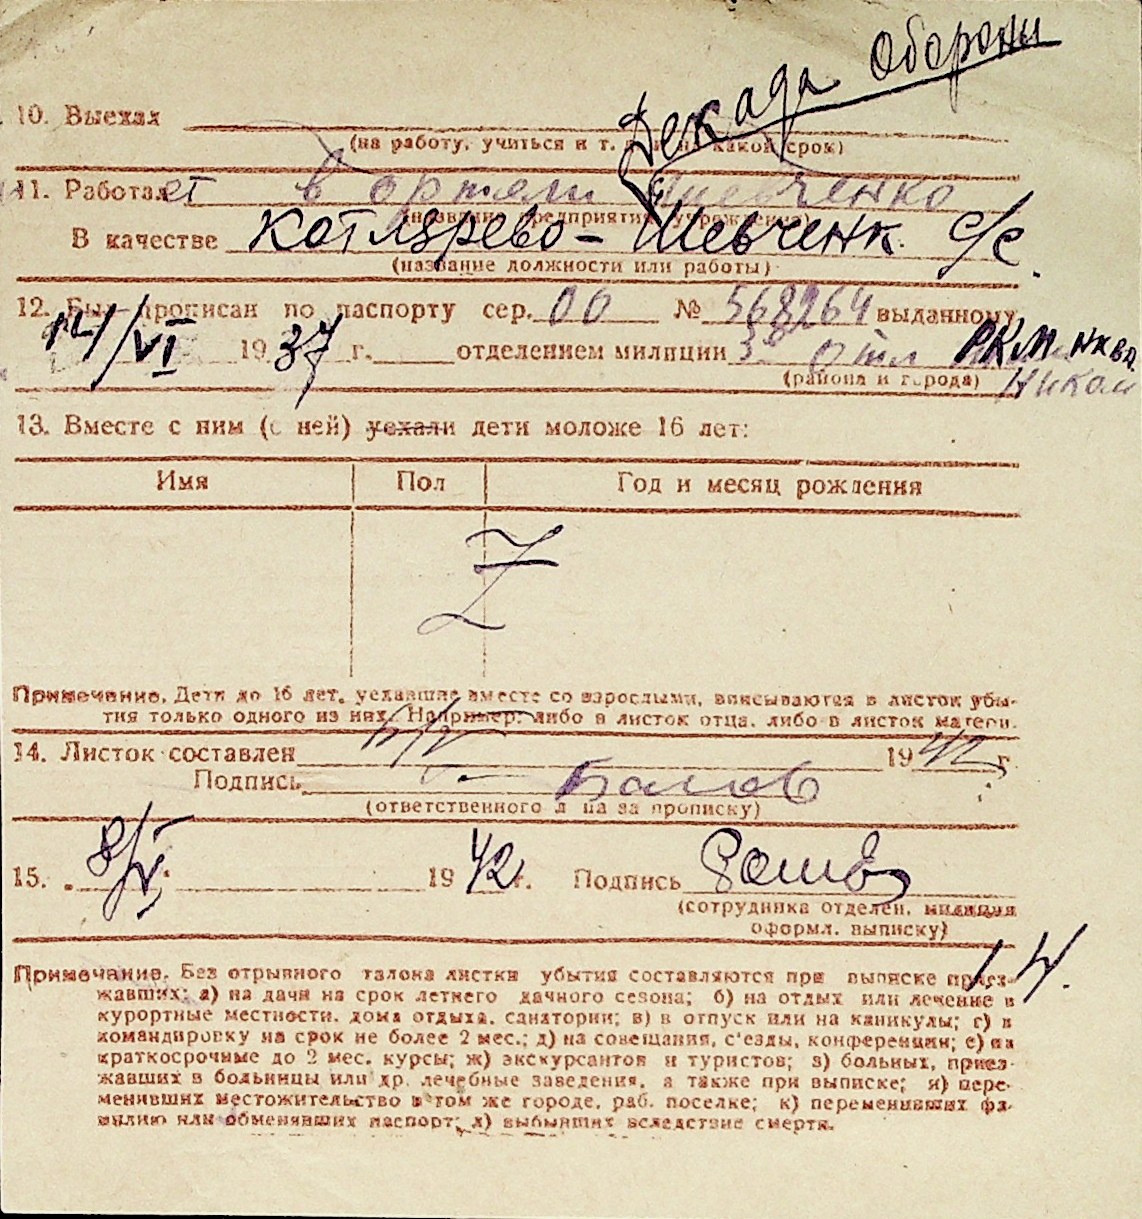 Декада Обороны
10. Выехал
(на работу, учиться и т. д. и на какой срок)
11. Работает в артели Шевченко
(название предприятия, учреждения)
В качестве Котлярево-Шевченк. с/с.
(название должности или работы)
12. Был прописан по паспорту сер. 00 № 568264 выданному
14/VI 1937 г. отделением милиции 3е отл РКМ НКВД
(района и города) Никол
13. Вместе с ним (с ней) уехали дети моложе 16 лет:
Имя Пол Год и месяц рождения
Z
Примечание. Дети до 16 лет, уехавшие вместе со взрослыми, вписываются в листок убы-
тия только одного из них. Например: либо в листок отца, либо в листок матери.
14. Листок составлен 1942 г.
Подпись
(ответственного лица за прописку)
15. 8/V 1942 г. Подпись
(сотрудника отделен. милиции
оформл. выписку)
14.
Примечание. Без отрывного талона листки убытия составляются при выписке приез-
жавших: а) на дачи на срок летнего дачного сезона; б) на отдых или лечение в
курортные местности, дома отдыха, санатории; в) в отпуск или на каникулы; г) в
командировку на срок не более 2 мес.; д) на совещания, с'езды, конференции; е) на
краткосрочные до 2 мес. курсы; ж) экскурсантов и туристов; з) больных, приез-
жавших в больницы или др. лечебные заведения, а также при выписке; и) пере-
менивших местожительство в том же городе, раб. поселке; к) переменивших фа-
милию или обменявших паспорт; л) выбывших вследствие смерти.